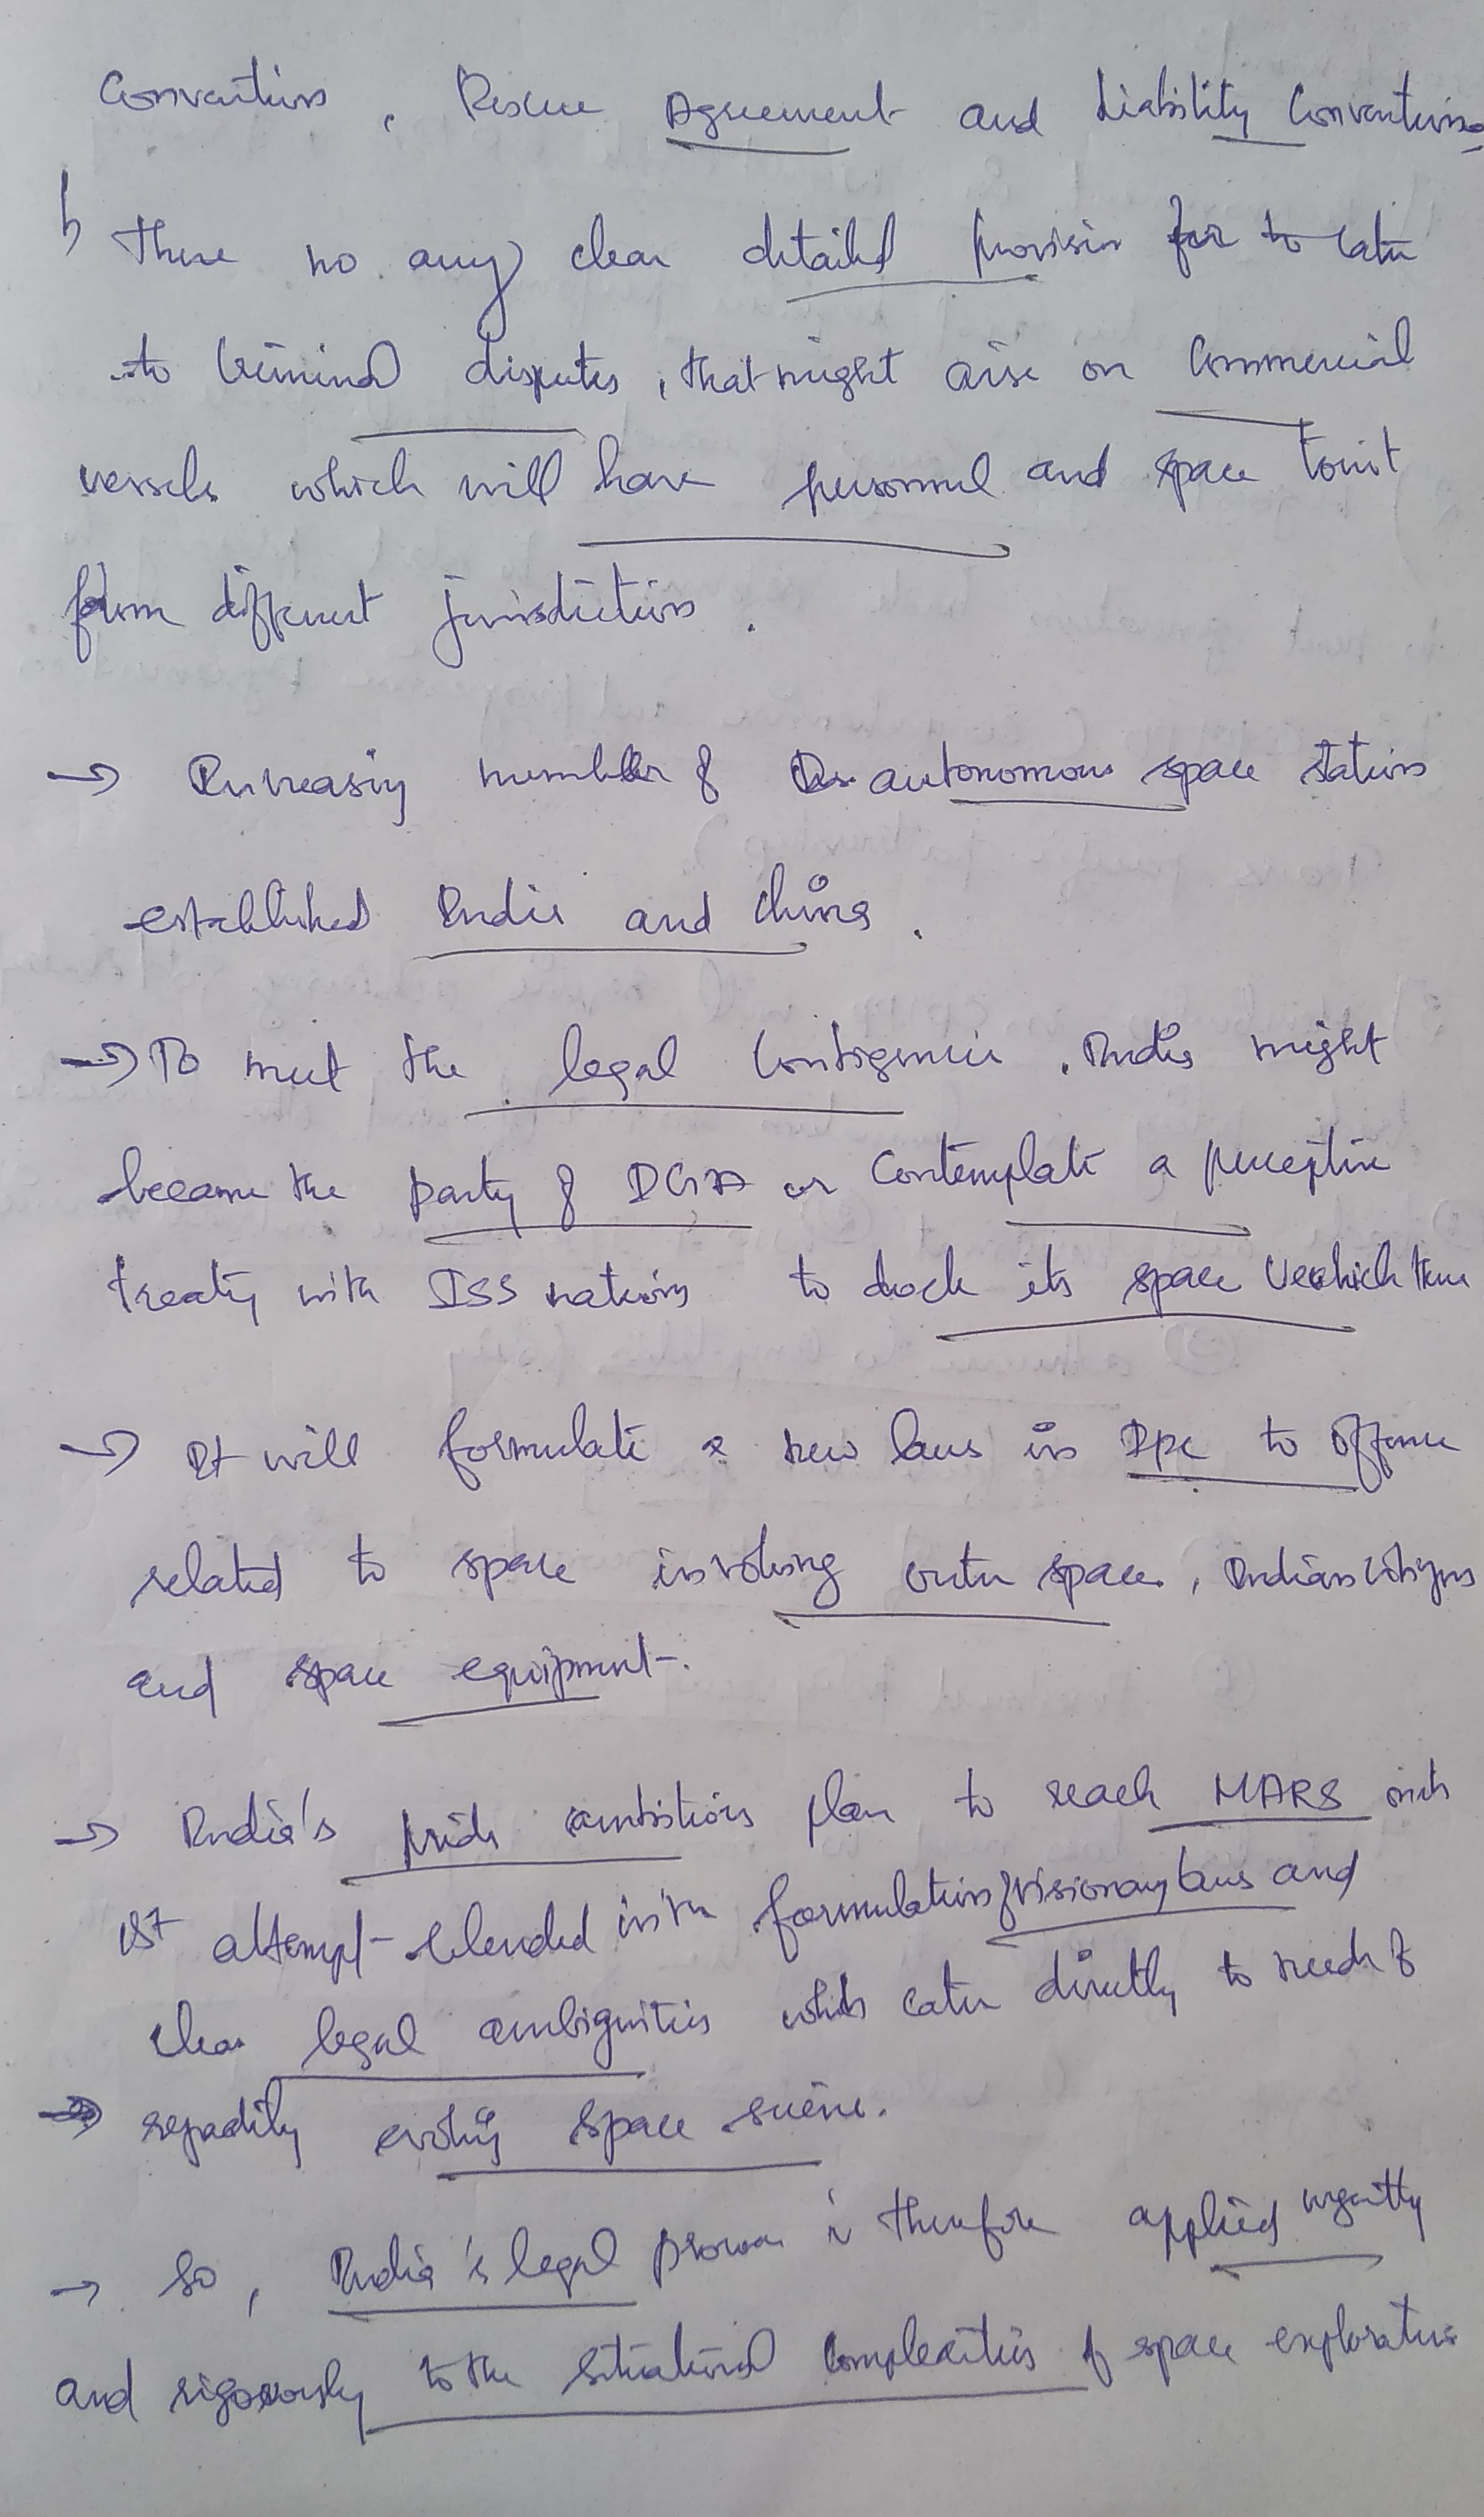 Conventions, Rescue Agreement and Liability Conventions.
↳ There no any clear detailed provision for to cater
to Criminal disputes, that might arise on Commercial
vessels which will have personnel and space tourist
from different jurisdictions.
→ Increasing number of autonomous space stations
established India and China.
→ To meet the legal Contigencie. India might
become the party of IGA or Contemplate a perceptive
treaty with ISS nations to dock its space Vechicle
→ It will formulate new laws in Ipc to offence
related to space involving outer space, Indian Citizens
and space equipment.
→ India's pride ambitions plan to reach MARS
1st attempt blended with formulations of visionary laws and
clear legal ambiguities which cater directly to needs of
repadily evolving space scene.
→ So, India's legal prowess is therefore applied urgently
and rigorously to the Situational Complexities of space exploration